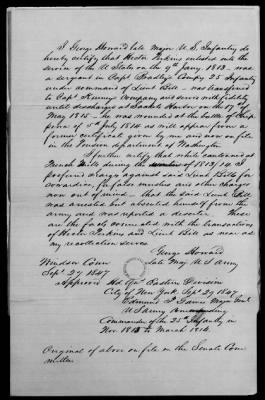 I George Howard late Major U.S. Infantry do
hereby certify that Hester Perkins enlisted into the
service of the U States on the 9th Jany. 1813 - was
a sergeant in Capt Bradley's Compy 25 Infantry
under command of Lieut Bill - was transferred
to Capt Kinney's Company and served with fidelity
until discharged at Sacketts Harbor on the 17th of
May 1815 - he was wounded at the battle of Chip
pewa of 5th July 1814 as will appear from a
former certificate given by me and now on file
in the Pension department at Washington
I further certify that while cantoned at
French Mills during the winter of 1813/14 he
preferred charges against said Lieut Bill for
cowardice, false musters and other charges
now out of mind - that the said Lieut Bill
was arrested but absented himself from the
army and was reported a deserter. These
are the facts connected with the transactions
of Hester Perkins and Lieut Bill as near as
my recollection serves
George Howard
Late Maj U S Army
Windsor Conn
Sept 27 1847
Approved Hd. Qrs Eastern Division
City of New York Sept 29 1847
Edmund P Gaines Major Genl
U S Army Commanding
Commander of the 25th Infantry in
Nov 1813 to March 1814.
Original of above on file in the Senate Com
mittee